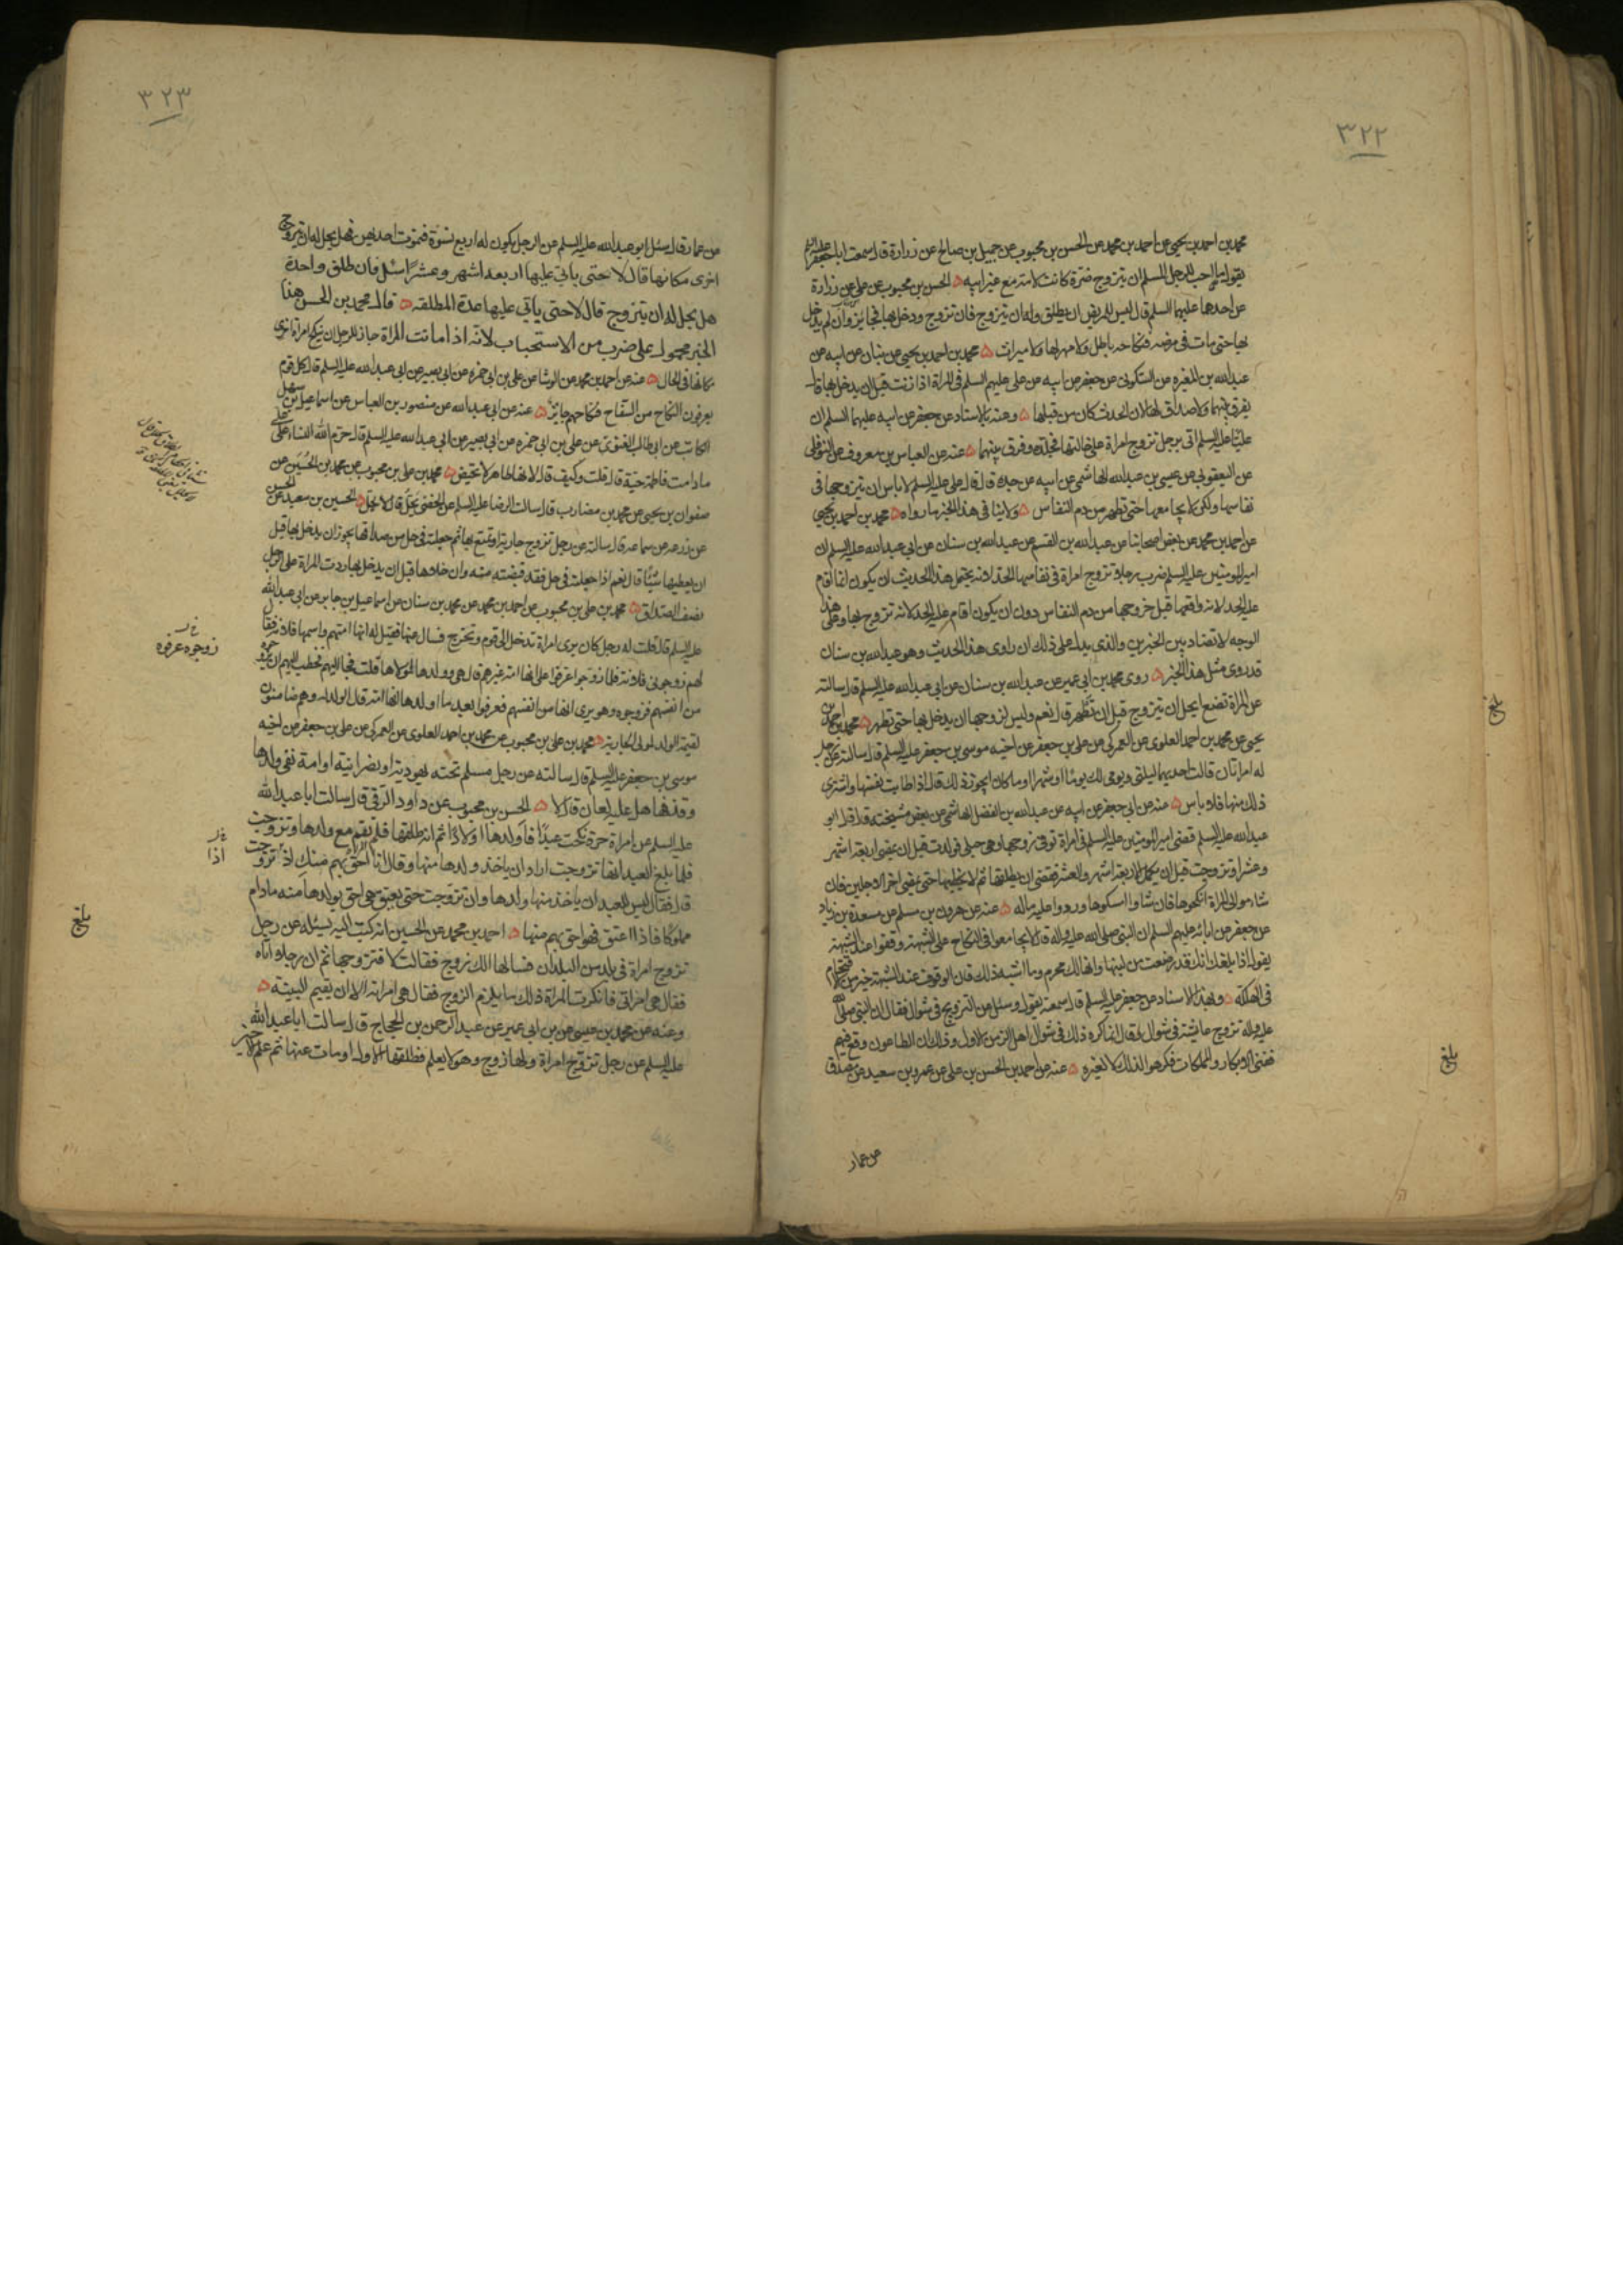 ٣٢٢
محمد بن احمد بن يحيى عن احمد بن محمد عن الحسن بن محبوب عن جميل بن صالح عن زرارة قال سمعت ابا جعفر عليه السلم
يقول ما احب للرجل المسلم ان يتزوج ضرة كانت لامه مع غير ابيه الحسن بن محبوب عن على عن زرارة
عن احدهما عليهما السلم قال ليس للمريض ان يطلق وله ان يتزوج فان تزوج ودخل بها فجايز وان لم يدخل
بها حتى مات في مرضه فنكاحه باطل ولا مهر لها ولا ميراث محمد بن احمد بن يحيى عن بنان عن ابيه عن
عبدالله بن المغيره عن السكونى عن جعفر عن ابيه عن على عليهم السلم فى المراة اذا زنت قبل ان يدخل بها قال
يفرق بينهما ولا صداق لها لان الحدث كان من قبلها وعنه بالاسناد عن جعفر عن ابيه عليهما السلم ان
عليا عليه السلم اتى برجل تزوج امراة على خالتها فجلده وفرق بينهما عنه عن العباس بن معروف عن النوفلى
عن اليعقوبى عن عيسى بن عبدالله الهاشمى عن ابيه عن جده قال قال على عليه السلم لا باس ان يتزوجها فى
نفاسها ولكن لا يجامعها حتى تطهر من دم النفاس ولا ينافى هذا الخبر ما رواه محمد بن احمد بن يحيى
عن احمد بن محمد عن بعض اصحابنا عن عبدالله بن القسم عن عبدالله بن سنان عن ابى عبدالله عليه السلم ان
امير المومنين عليه السلم ضرب رجلا تزوج امراة فى نفاسها الحد لانه يحتمل هذا الحديث ان يكون انما اقام
عليه الحد لانه واقعها قبل خروجها من دم النفاس دون ان يكون اقام عليه الحد لانه تزوج بها وعلى هذا
الوجه لا تضاد بين الخبرين والذى يدل على ذلك ان راوى هذا الحديث وهو عبدالله بن سنان
قد روى مثل هذا الخبر روى محمد بن ابى عمير عن عبدالله بن سنان عن ابى عبدالله عليه السلم قال سالته
عن المراة تضع ايحل ان يتزوج قبل ان تطهر قال نعم وليس لزوجها ان يدخل بها حتى تطهر محمد بن احمد بن
يحيى عن محمد بن احمد العلوى عن العمركى عن على بن جعفر عن اخيه موسى بن جعفر عليه السلم قال سالته عن رجل
له امراتان قالت احديهما ليلتى ويومى لك يوما او شهرا او ما كان ايجوز ذلك قال اذا طابت نفسها واشترى
ذلك منها فلا باس عنه عن ابى جعفر عن ابيه عن عبدالله بن الفضل الهاشمى عن بعض مشيخته قال قال ابو
عبدالله عليه السلم قضى امير المومنين عليه السلم فى امراة توفى زوجها وهى حبلى فولدت قبل ان يمضى اربعة اشهر
وعشرا وتزوجت قبل ان يكمل الاربعة اشهر والعشر فقضى ان يطلقها ثم لا يخطبها حتى يمضى اخر الاجلين فان
شاء موالى المراة انكحوها فان شاوا امسكوها وردوا عليه ماله عنه عن هرون بن مسلم عن مسعدة بن زياد
عن جعفر عن ابائه عليهم السلم ان النبى صلى الله عليه واله قال لا تجامعوا فى النكاح على الشبهة وقفوا عند الشبهة
يقول اذا بلغك انك قد رضعت من لبنها وانها لك محرم وما اشبه ذلك فان الوقوف عند الشبهة خير من الاقتحام
فى الهلكة وبهذا الاسناد عن جعفر عليه السلم قال سمعته يقول وسئل عن التزويج فى شوال فقال ان النبى صلى الله
عليه واله تزوج عايشة فى شوال وقال انما كره ذلك فى شوال اهل الزمن الاول وذلك ان الطاعون وقع فيهم
ففنى الابكار والمملكات فكرهوا لذلك لا لغيره عنه عن احمد بن الحسن بن على عن عمرو بن سعيد عن مصدق
عن عمار
بلغ
بلغ
٣٢٣
عن عمار قال سئل ابو عبدالله عليه السلم عن الرجل يكون له اربع نسوة فتموت احديهن فهل يحل له ان يتزوج
اخرى مكانها قال لا حتى ياتى عليها اربعة اشهر وعشرا سئل فان طلق واحدة
هل يحل له ان يتزوج قال لا حتى ياتى عليها عدة المطلقه قال محمد بن الحسن هذا
الخبر محمول على ضرب من الاستحباب لانه اذا ماتت المراة جاز للرجل ان ينكح امراة اخرى
مكانها فى الحال عنه عن احمد بن محمد عن الوشا عن على بن ابى حمزه عن ابى بصير عن ابى عبدالله عليه السلم قال كل قوم
يعرفون النكاح من السفاح فنكاحهم جائز عنه عن ابى عبدالله عن منصور بن العباس عن اسماعيل بن سهل
الكاتب عن ابى طالب الغنوى عن على بن ابى حمزه عن ابى بصير عن ابى عبدالله عليه السلم قال حرم الله النساء على على
ما دامت فاطمة حية قال قلت وكيف قال لانها طاهر لا تحيض محمد بن على بن محبوب عن محمد بن الحسين عن
صفوان بن يحيى عن محمد بن مضارب قال سالت الرضا عليه السلم عن الخصى يحلل قال لا يحلل الحسين بن سعيد عن الحسن
عن زرعه عن سماعه قال سالته عن رجل تزوج جارية او تمتع بها ثم جعلته فى حل من صداقها يجوز ان يدخل بها قبل
ان يعطيها شيئا قال نعم اذا جعلته فى حل فقد قبضته منه وان خلاها قبل ان يدخل بها ردت المراة على الرجل
نصف الصداق محمد بن على بن محبوب عن احمد بن محمد عن محمد بن سنان عن اسماعيل بن جابر عن ابى عبدالله
عليه السلم قال قلت له رجل كان يرى امراة تدخل الى قوم وتخرج فسال عنها فقيل له انها امتهم واسمها فلانه فقال
لهم زوجونى فلانه فلما زوجوا عرفوا على انها امة غيرهم قال هى وولدها لمولاها قلت فجا اليهم فخطب اليهم ان يزوجوه
من انفسهم فزوجوه وهو يرى انها من انفسهم فعرفوا بعد ما اولدها انها امة قال الولد له وهم ضامنون
لقيمة الولد لمولى الجارية محمد بن على بن محبوب عن محمد بن احمد العلوى عن العمركى عن على بن جعفر عن اخيه
موسى بن جعفر عليه السلم قال سالته عن رجل مسلم تحته يهودية او نصرانية او امة نفى ولدها
وقذفها هل عليه لعان قال لا الحسن بن محبوب عن داود الرقى قال سالت ابا عبدالله
عليه السلم عن امراة حرة نكحت عبدا فاولدها اولادا ثم انه طلقها فلم تقم مع ولدها وتزوجت
فلما بلغ العبد انها تزوجت اراد ان ياخذ ولدها منها وقال انا احق بهم منك اذ تزوجت
قال فقال ليس للعبد ان ياخذ منها ولدها وان تزوجت حتى يعتق هى احق بولدها منه ما دام
مملوكا فاذا اعتق فهو احق بهم منها احمد بن محمد عن الحسين انه كتب اليه يسئله عن رجل
تزوج امراة فى بلد من البلدان فسالها الك زوج فقالت لا فتزوجها ثم ان رجلا اتاه
فقال هى امراتى فانكرت المراة ذلك ما يلزم الزوج فقال هى امراته الا ان يقيم البينة
وعنه عن محمد بن عيسى عن بن ابى عمير عن عبدالرحمن بن الحجاج قال سالت ابا عبدالله
عليه السلم عن رجل تزوج امراة ولها زوج وهو لا يعلم فطلقها الاول او مات عنها ثم علم الاخير
زوجوه عرفوه
اذا
بلغ